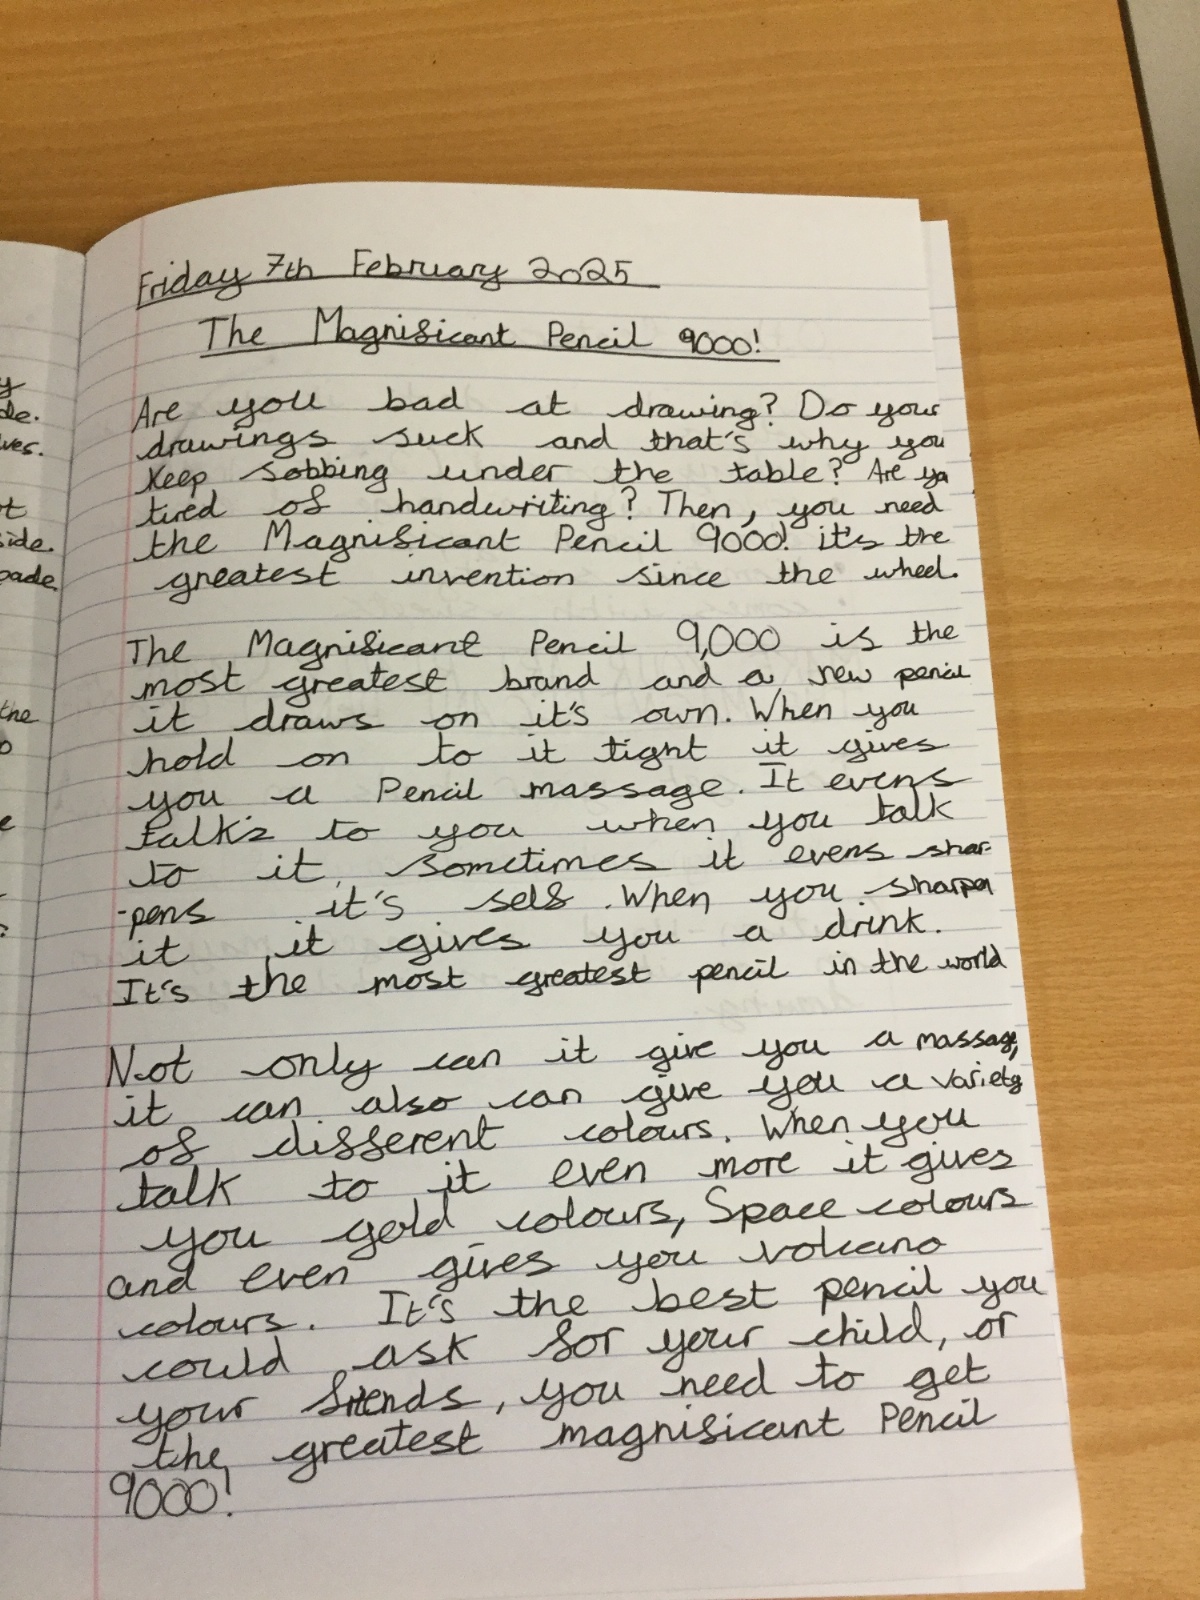 Friday 7th February 2025
The Magnificant Pencil 9000!
Are you bad at drawing? Do your
drawings suck and that's why you
keep sobbing under the table? Are yo
tired of handwriting? Then, you need
the Magnificant Pencil 9000! it's the
greatest invention since the wheel.
The Magnificant Pencil 9,000 is the
most greatest brand and a new pencil
it draws on it's own. When you
hold on to it tight it gives
you a Pencil massage. It evens
talk's to you when you talk
to it, sometimes it evens shar-
-pens it's self. When you sharpen
it, it gives you a drink.
It's the most greatest pencil in the world
Not only can it give you a massage,
it can also can give you a variety
of different colours. When you
talk to it even more it gives
you gold colours, Space colours
and even gives you volcano
colours. It's the best pencil you
could ask for your child, or
your friends, you need to get
the greatest magnificant Pencil
9000!
y
de.
ves.
t
side.
pade.
the
o
e